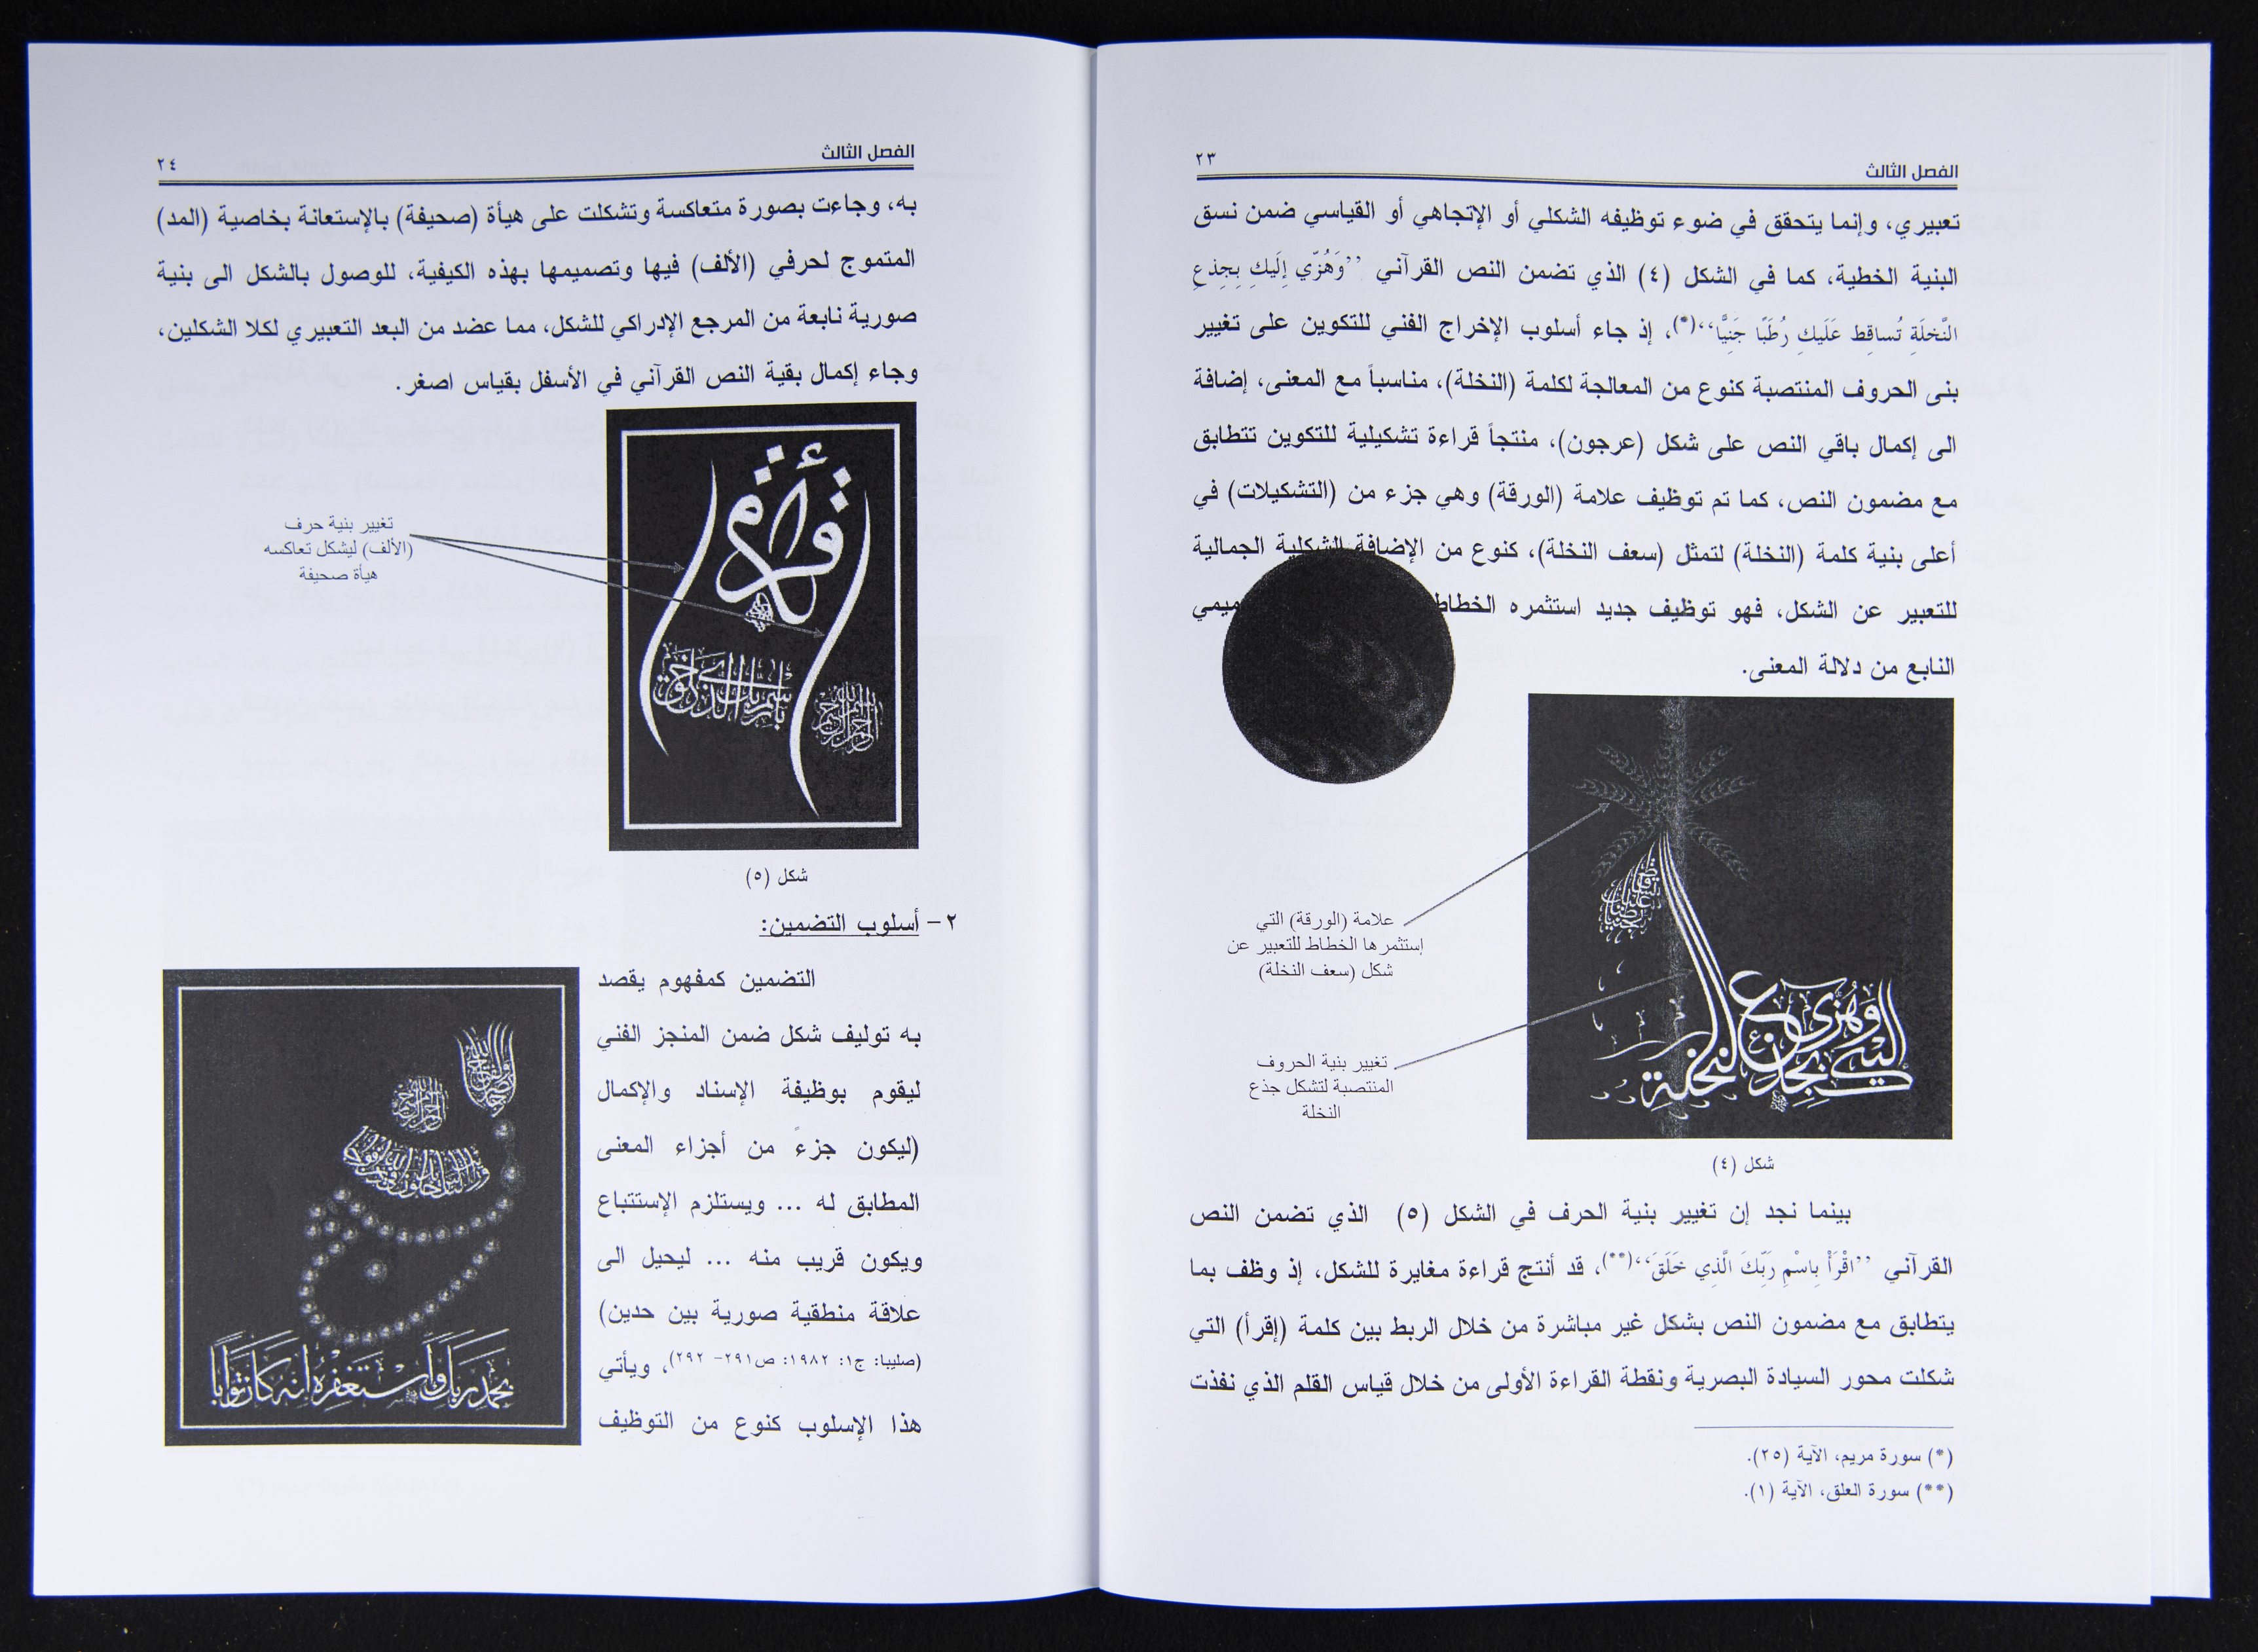 الفصل الثالث
٢٣
تعبيري، وإنما يتحقق في ضوء توظيفه الشكلي أو الإتجاهي أو القياسي ضمن نسق
البنية الخطية، كما في الشكل (٤) الذي تضمن النص القرآني ’’وَهُزّي إِلَيكِ بِجِذعِ
النَّخلَةِ تُساقِط عَلَيكِ رُطَبًا جَنِيًّا‘‘(*)، إذ جاء أسلوب الإخراج الفني للتكوين على تغيير
بنى الحروف المنتصبة كنوع من المعالجة لكلمة (النخلة)، مناسباً مع المعنى، إضافة
الى إكمال باقي النص على شكل (عرجون)، منتجاً قراءة تشكيلية للتكوين تتطابق
مع مضمون النص، كما تم توظيف علامة (الورقة) وهي جزء من (التشكيلات) في
أعلى بنية كلمة (النخلة) لتمثل (سعف النخلة)، كنوع من الإضافة الشكلية الجمالية
للتعبير عن الشكل، فهو توظيف جديد استثمره الخطاط
النابع من دلالة المعنى.
علامة (الورقة) التي
إستثمرها الخطاط للتعبير عن
شكل (سعف النخلة)
تغيير بنية الحروف
المنتصبة لتشكل جذع
النخلة
وهزي
اليك بجذع
النخلة
شكل (٤)
بينما نجد إن تغيير بنية الحرف في الشكل (٥) الذي تضمن النص
القرآني ’’اقْرَأْ بِاسْمِ رَبِّكَ الَّذِي خَلَقَ‘‘(**)، قد أنتج قراءة مغايرة للشكل، إذ وظف بما
يتطابق مع مضمون النص بشكل غير مباشرة من خلال الربط بين كلمة (إقرأ) التي
شكلت محور السيادة البصرية ونقطة القراءة الأولى من خلال قياس القلم الذي نفذت
(*) سورة مريم، الآية (٢٥).
(**) سورة العلق، الآية (١).
الفصل الثالث
٢٤
به، وجاءت بصورة متعاكسة وتشكلت على هيأة (صحيفة) بالإستعانة بخاصية (المد)
المتموج لحرفي (الألف) فيها وتصميمها بهذه الكيفية، للوصول بالشكل الى بنية
صورية نابعة من المرجع الإدراكي للشكل، مما عضد من البعد التعبيري لكلا الشكلين،
وجاء إكمال بقية النص القرآني في الأسفل بقياس اصغر.
تغيير بنية حرف
(الألف) ليشكل تعاكسه
هيأة صحيفة
اقرأ
باسم ربك الذي خلق
شكل (٥)
٢- أسلوب التضمين:
التضمين كمفهوم يقصد
به توليف شكل ضمن المنجز الفني
ليقوم بوظيفة الإسناد والإكمال
(ليكون جزءً من أجزاء المعنى
المطابق له ... ويستلزم الإستتباع
ويكون قريب منه ... ليحيل الى
علاقة منطقية صورية بين حدين)
(صليبا: ج١: ١٩٨٢: ص٢٩١- ٢٩٢)، ويأتي
هذا الإسلوب كنوع من التوظيف
بحمد ربك واستغفره إنه كان توابا